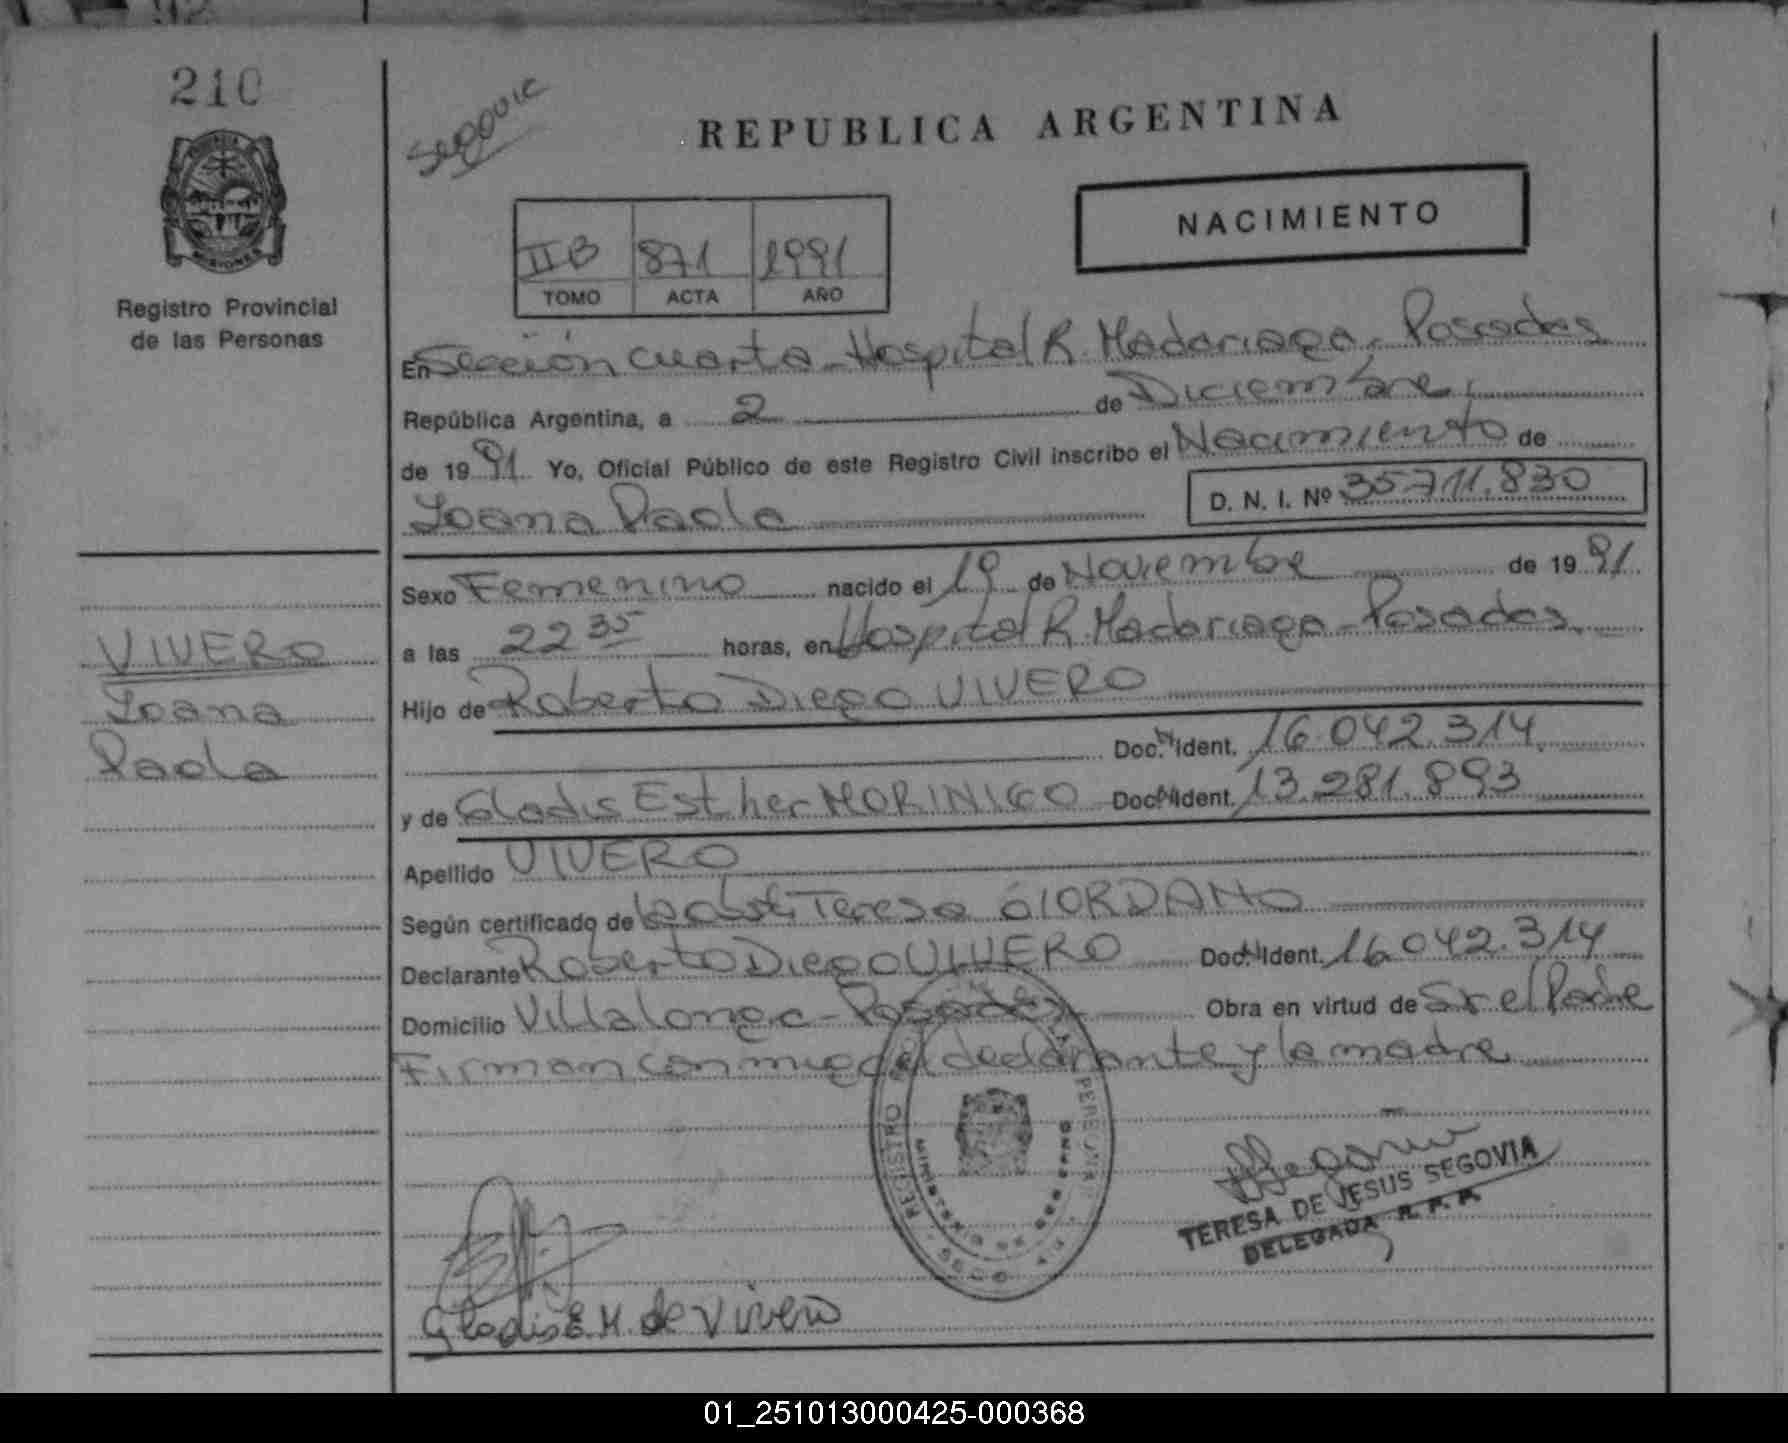 210
Segovic
REPUBLICA ARGENTINA
NACIMIENTO
IIB 871 1991
TOMO ACTA AÑO
MISIONES
Registro Provincial
de las Personas
En Sección cuarta - Hospital R. Madariaga - Posadas
República Argentina, a 2 de Diciembre
de 1991 Yo, Oficial Público de este Registro Civil inscribo el Nacimiento de
Ioana Paola D. N. I. Nº 35.711.830
Sexo Femenino nacido el 19 de Noviembre de 1991.
a las 22 35 horas, en Hospital R. Madariaga - Posadas
Hijo de Roberto Diego VIVERO
Doc. N Ident. 16.042.314
y de Gladis Esther MORINIGO Doc. N Ident. 13.281.893
Apellido VIVERO
Según certificado de Teresa GIORDANO
Declarante Roberto Diego VIVERO Doc. N Ident. 16.042.314
Domicilio Villalonga - Posadas Obra en virtud de Sr el Padre
Firman conmigo el declarante y la madre
VIVERO
Ioana
Paola
REGISTRO
Segovia
TERESA DE JESUS SEGOVIA
DELEGADA R. P. P.
Gladis E M. de Vivero
01_251013000425-000368